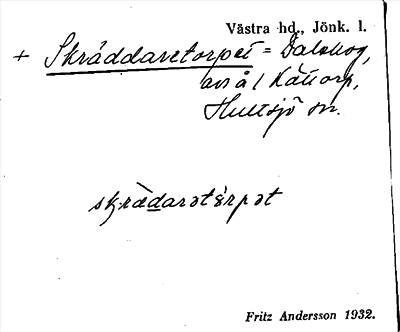 Västra hd., Jönk. l.
+ Skräddaretorpet = Dalskog,
avs å / Kättorp,
Hultsjö sn.
skrädarətərpət
Fritz Andersson 1932.